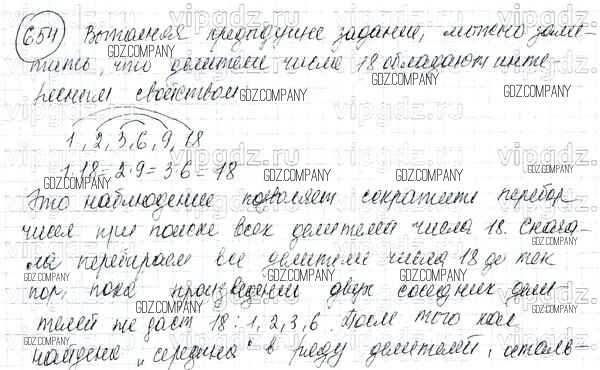 654 Выполняя предыдущие задание, можно заме-
тить, что делители числа 18 обладают инте-
ресным свойством
1, 2, 3, 6, 9, 18
1·18 = 2·9 = 3·6 = 18
Это наблюдение позволяет сократить перебор
чисел при поиске всех делителей числа 18. Снача-
ла перебираем все делители числа 18 до тех
пор, пока произведение двух соседних дели-
телей не даст 18: 1, 2, 3, 6. После того как
найдена „середина" в ряду делителей, осталь-